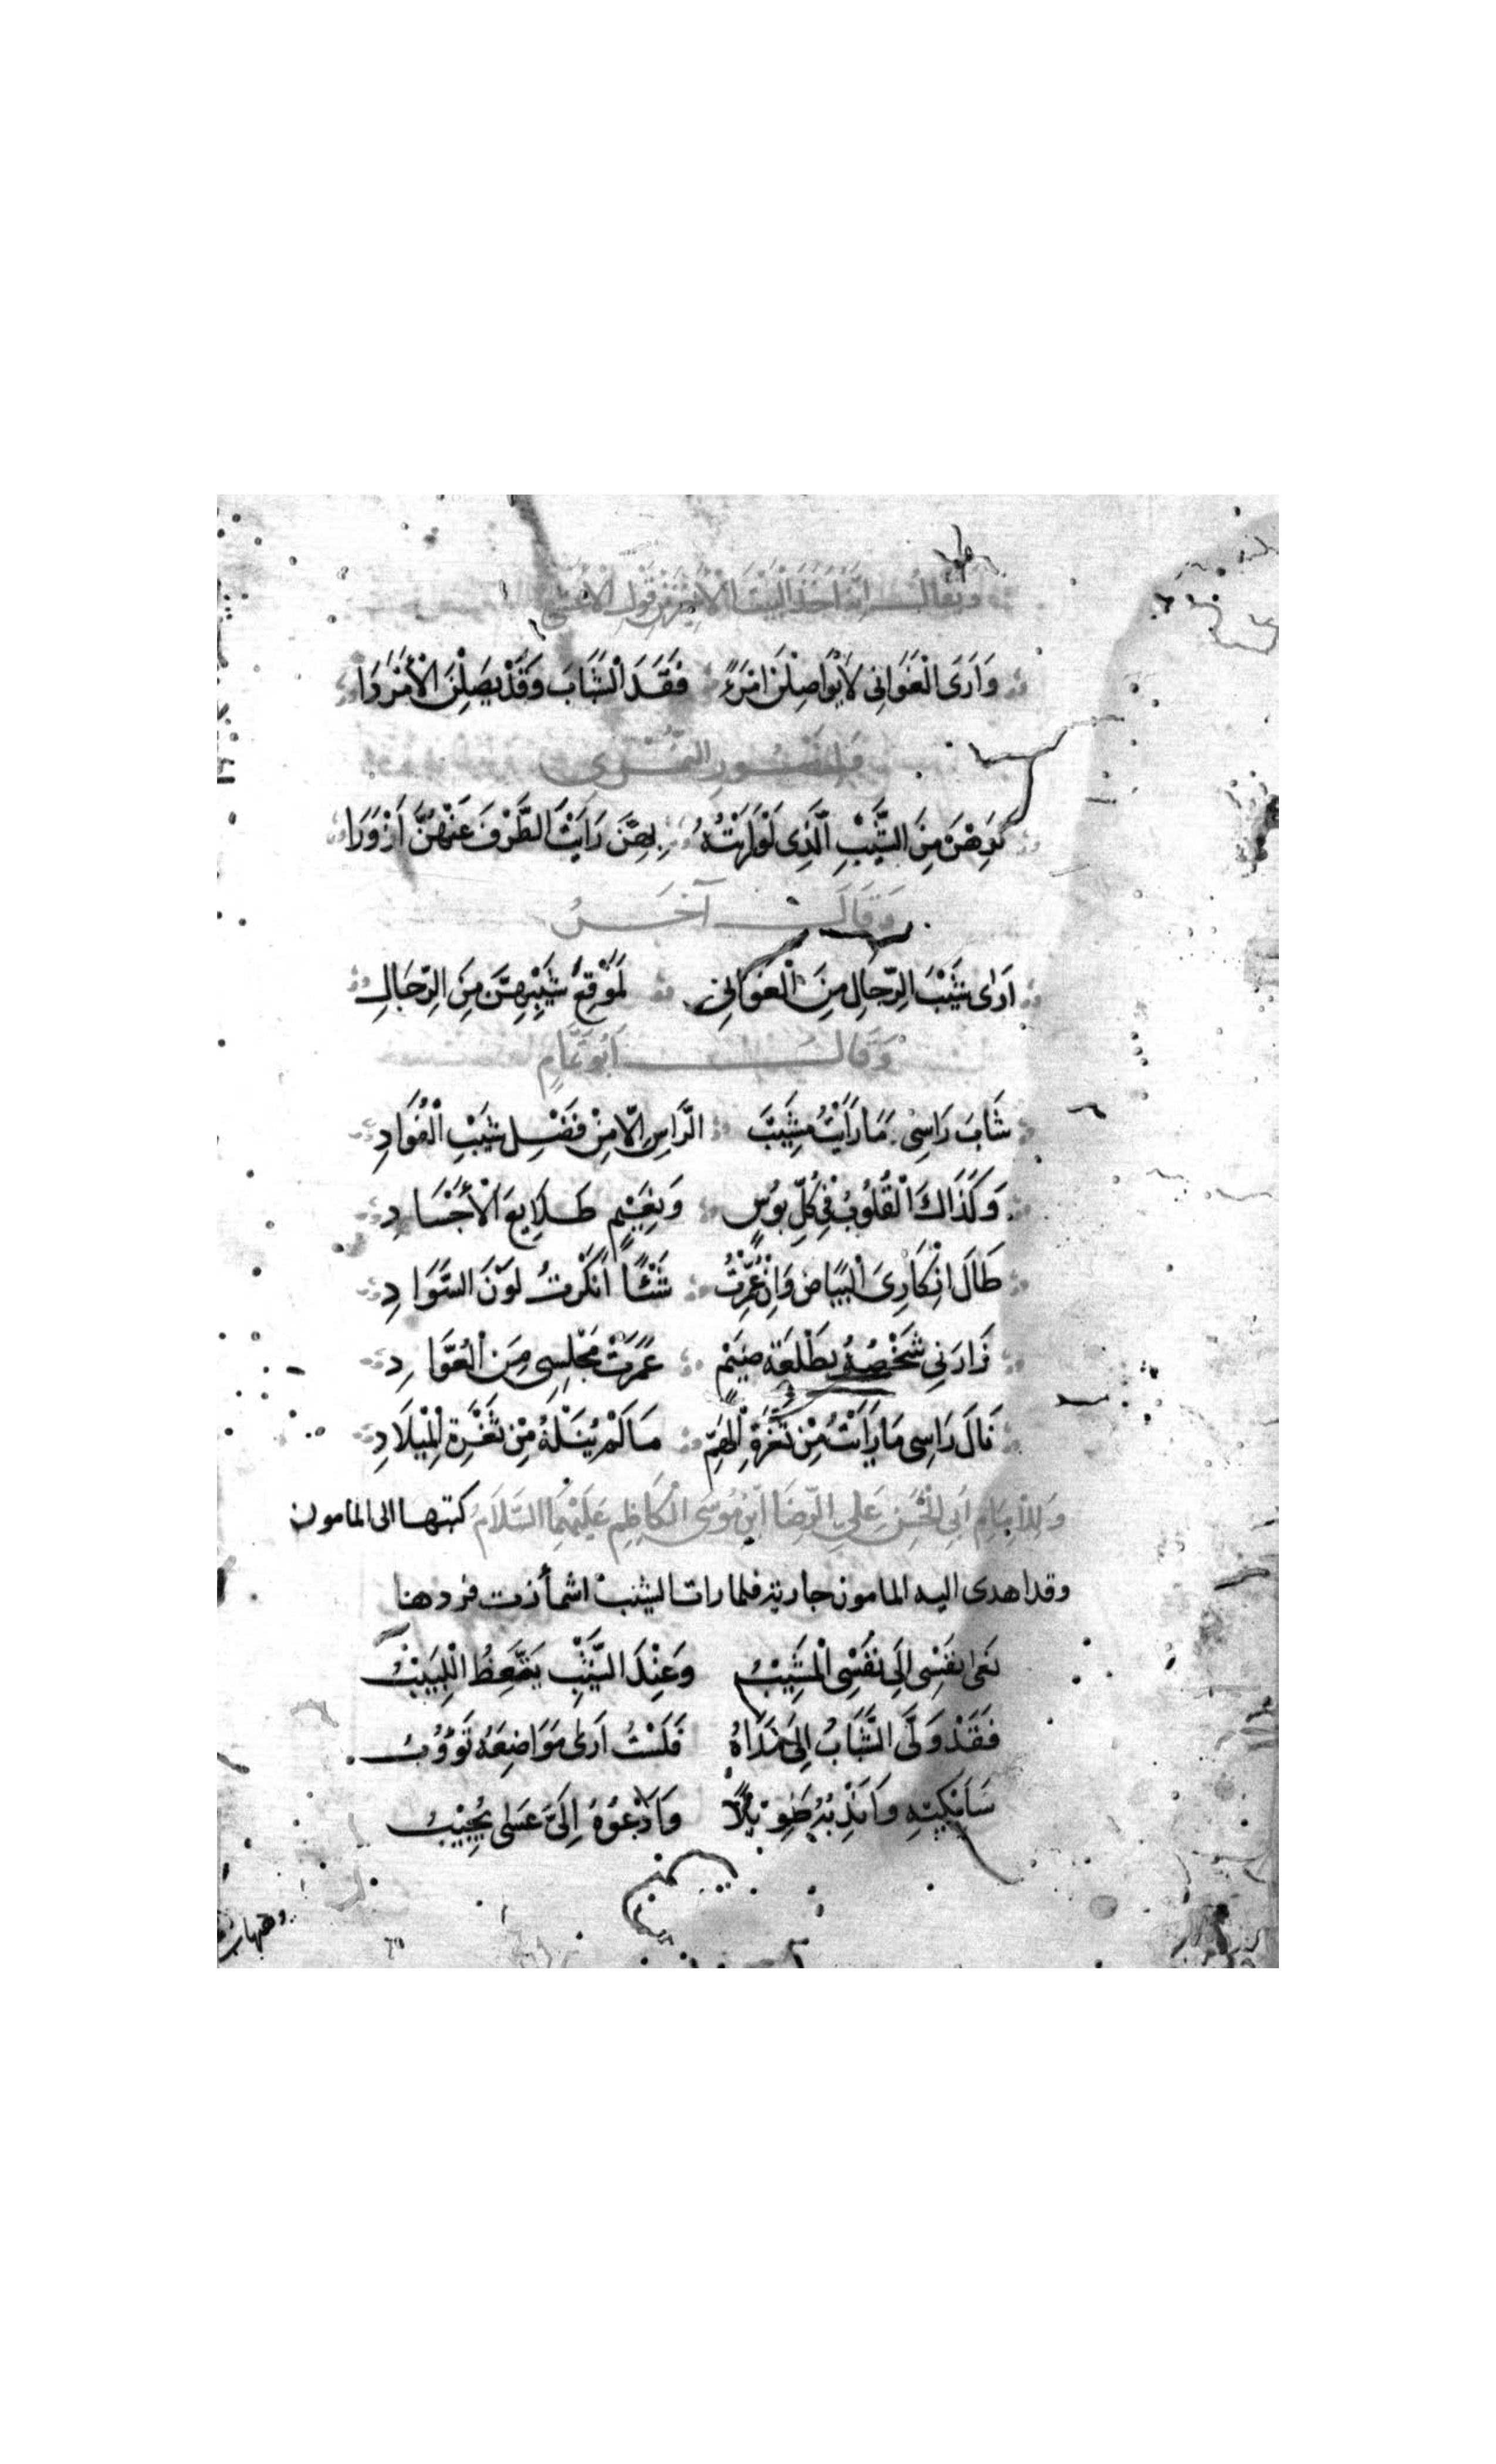 ويقال انه اخذ البيت الاخير من قول الاعشى
وَاَرَى الْغَوَانِى لَا يُوَاصِلْنَ امْرَءً فَقَدَ الشَّبَابَ وَقَدْ يَصِلْنَ الْأَمْرَدَا
النمرى
مِنَ الشَّيْبِ الَّذِى لَوْ رَاَيْتَ الطَّرْفَ عَنْهُنَّ اَزْوَرَا
وَقَالَ آخَرُ
اَرَى شَيْبَ الرِّجَالِ مِنَ الْغَوَانِى بِمَوْقِعِ شَيْبِهِنَّ مِنَ الرِّجَالِ
وَقَالَ اَبُو تَمَّامٍ
شَابَ رَاسِى وَمَا رَاَيْتُ مَشِيبَ الرَّاسِ اِلَّا مِنْ فَضْلِ شَيْبِ الْفُوَادِ
وَكَذَاكَ الْقُلُوبُ فِى كُلِّ بُوسٍ وَنَعِيْمٍ طَلَايِعَ الْأَجْسَادِ
طَالَ اِنْكَارِىَ الْبَيَاضَ وَاِنْ عُمِّرْتُ شَيْئًا اَنْكَرْتُ لَوْنَ السَّوَادِ
زَارَنِى شَخْصُهُ بِطَلْعَةِ ضَيْمٍ عَمَّرَتْ مَجْلِسِى مِنَ الْعُوَّادِ
نَالَ رَاسِى مَا رَاَيْتُ مِنْ ثُغْرَةِ الْهَمِّ مَا لَمْ يَنَلْهُ مِنْ ثُغْرَةِ الْمِيْلَادِ
وَلِلْاِمَامِ اَبِى الْحَسَنِ عَلِىِّ الرِّضَا ابْنِ مُوسَى الْكَاظِمِ عَلَيْهِمَا السَّلَامُ كتبها الى المامون
وقد اهدى اليه المامون جارية فلما رات الشيب اشمأزت فردها
نَعَى نَفْسِى اِلَى نَفْسِى الْمَشِيْبُ وَعِنْدَ الشَّيْبِ يَتَّعِظُ اللَّبِيْبُ
فَقَدْ وَلَّى الشَّبَابُ اِلَى مَدَاهُ فَلَسْتُ اَرَى مَوَاضِعَهُ تَؤُوْبُ
سَاَبْكِيْهِ وَاَنْدُبُهُ طَوِيْلًا وَاَدْعُوْهُ اِلَىَّ عَسَى يُجِيْبُ
وهيهات